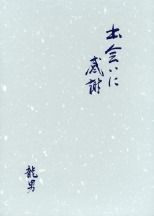 出会いに
感謝
龍男